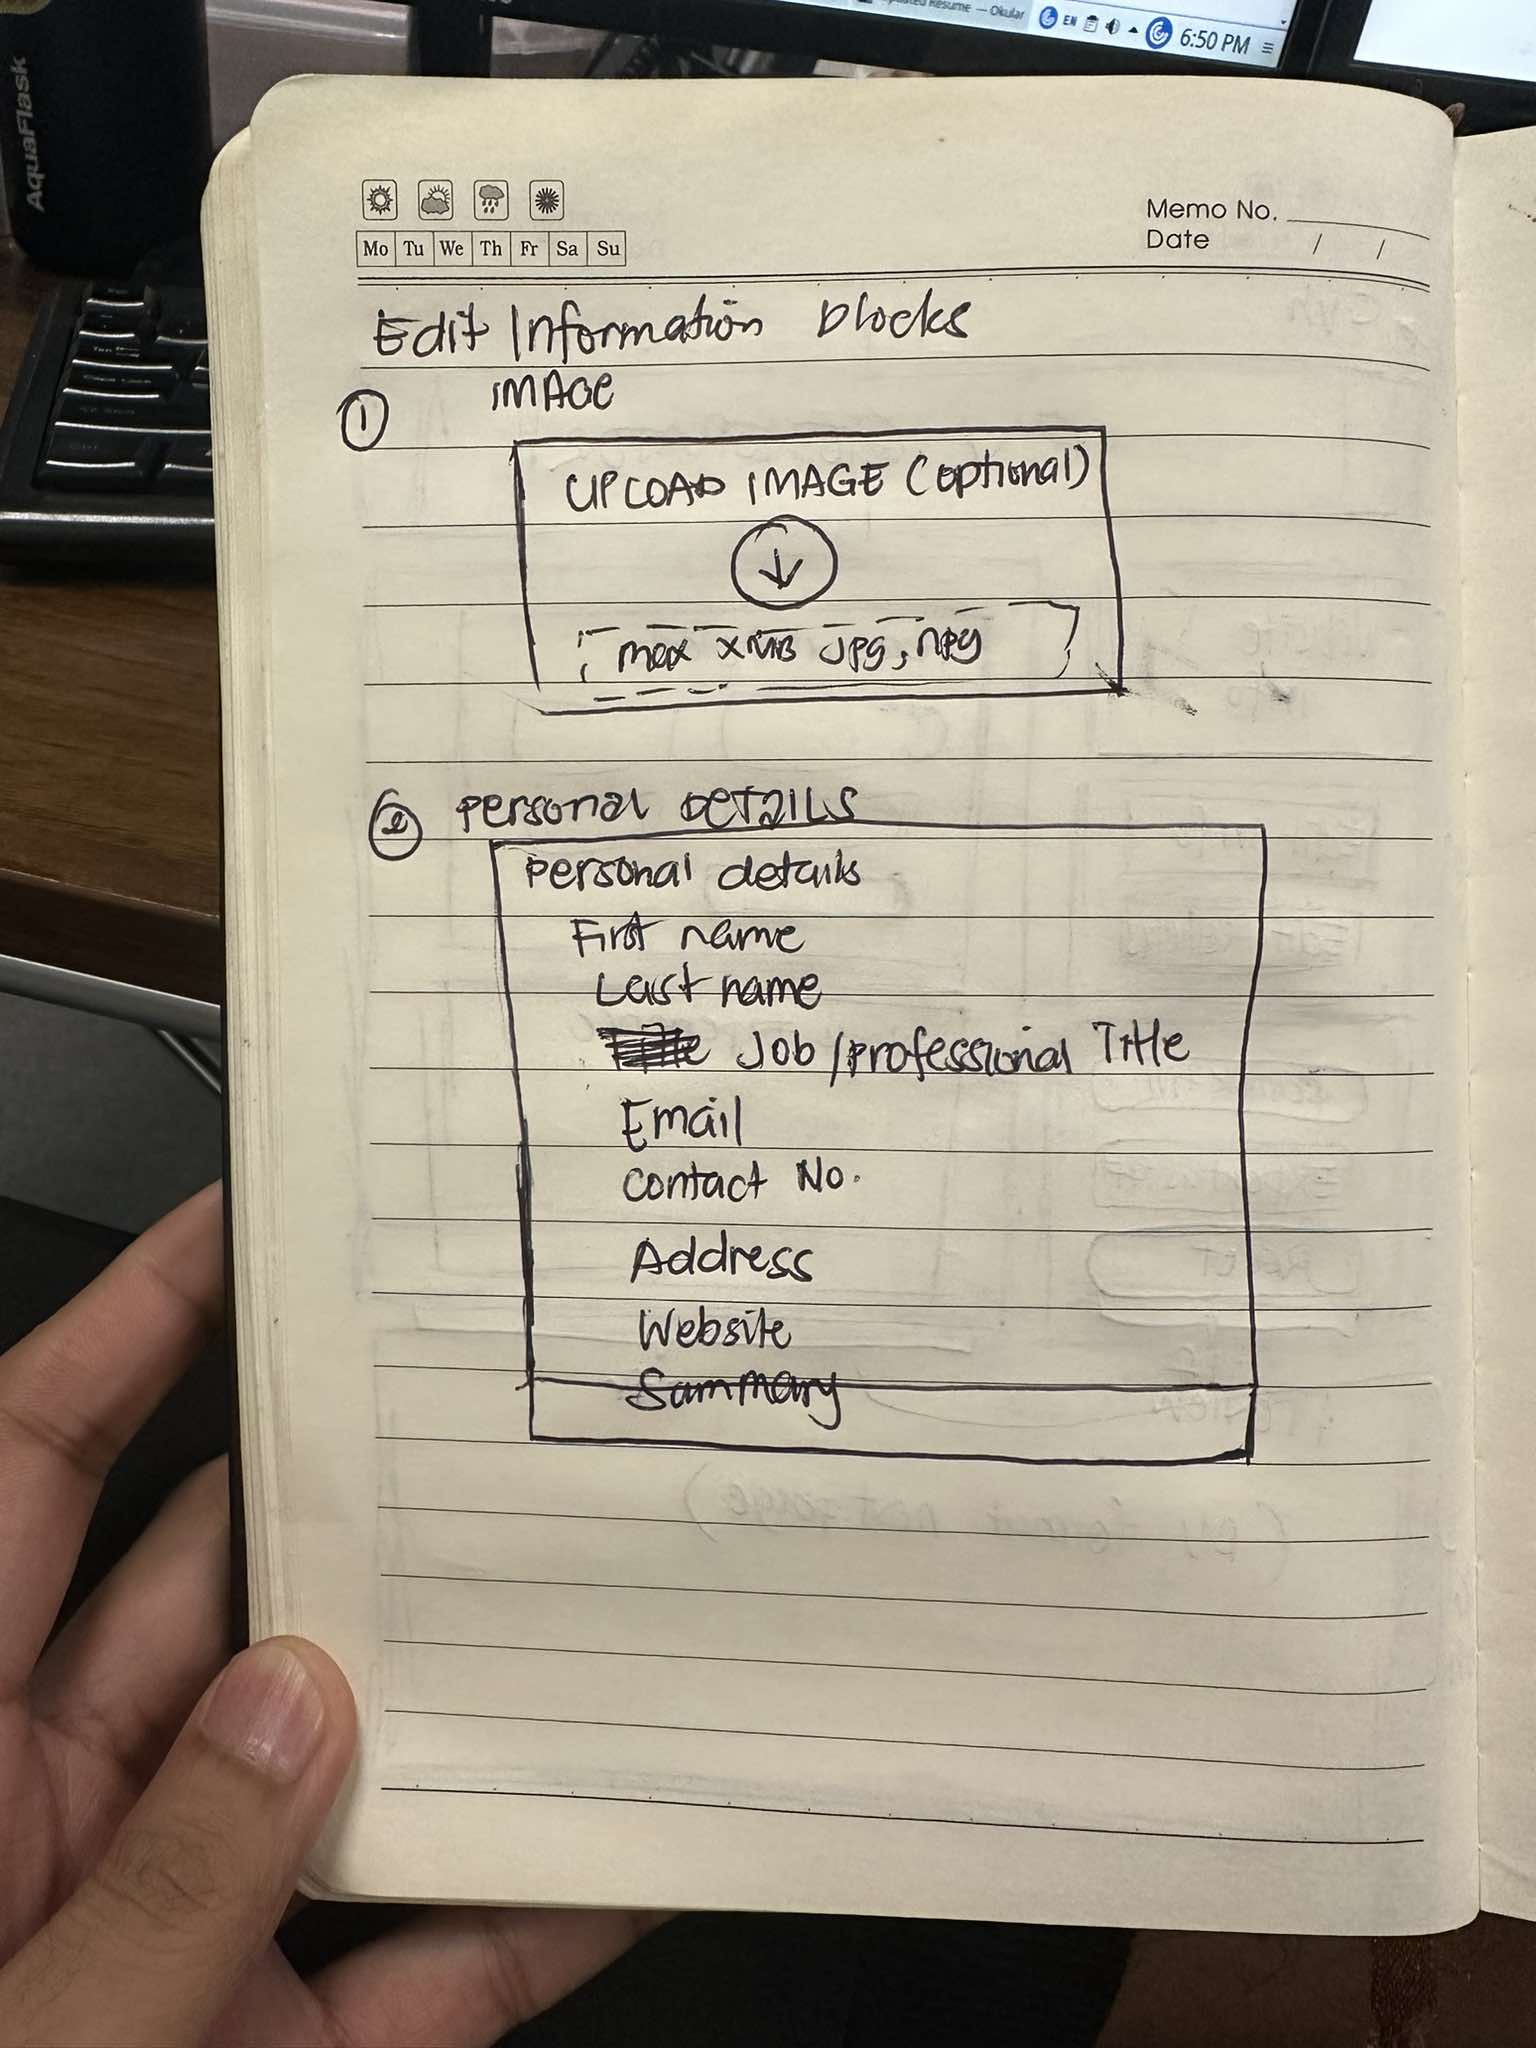 AquaFlask
Updated Resume — Okular
EN
6:50 PM
Memo No.
Date / /
Mo Tu We Th Fr Sa Su
Edit Information blocks
1 IMAGE
UPLOAD IMAGE (optional)
max XMB jpg, npg
2 PERSONAL DETAILS
Personal details
First name
Last name
Job/Professional Title
Email
Contact No.
Address
Website
Summary